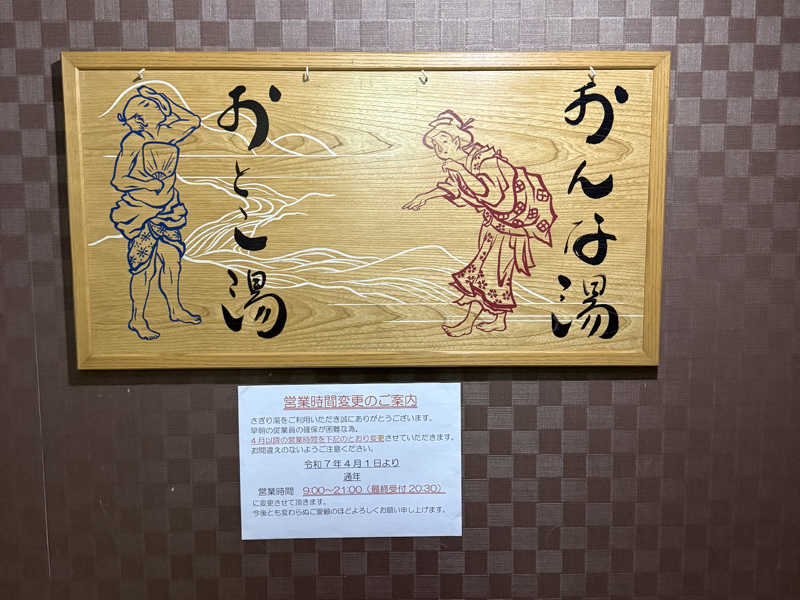 おんな湯
おとこ湯
営業時間変更のご案内
さぎり湯をご利用いただき誠にありがとうございます。
早朝の従業員の確保が困難な為、
4月以降の営業時間を下記のとおり変更させていただきます。
お間違えのないようご注意ください。
令和7年4月1日より
通年
営業時間 9:00~21:00(最終受付20:30)
に変更させて頂きます。
今後とも変わらぬご愛顧のほどよろしくお願い申し上げます。